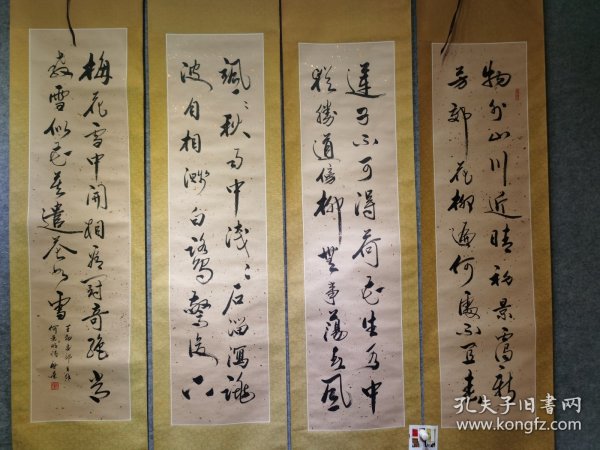 物外山川近晴初景靄新
芳郊花柳遍何處不宜春
蓮子不可得荷花生水中
猶勝道傍柳無事蕩春風
颯〻秋雨中淺〻石溜瀉跳
波自相濺白鷺驚復下
梅花雪中開相看鬥奇絕尚
教雪似花莫遣花如雪
何景明詩
孔夫子旧书网
www.kongfz.com